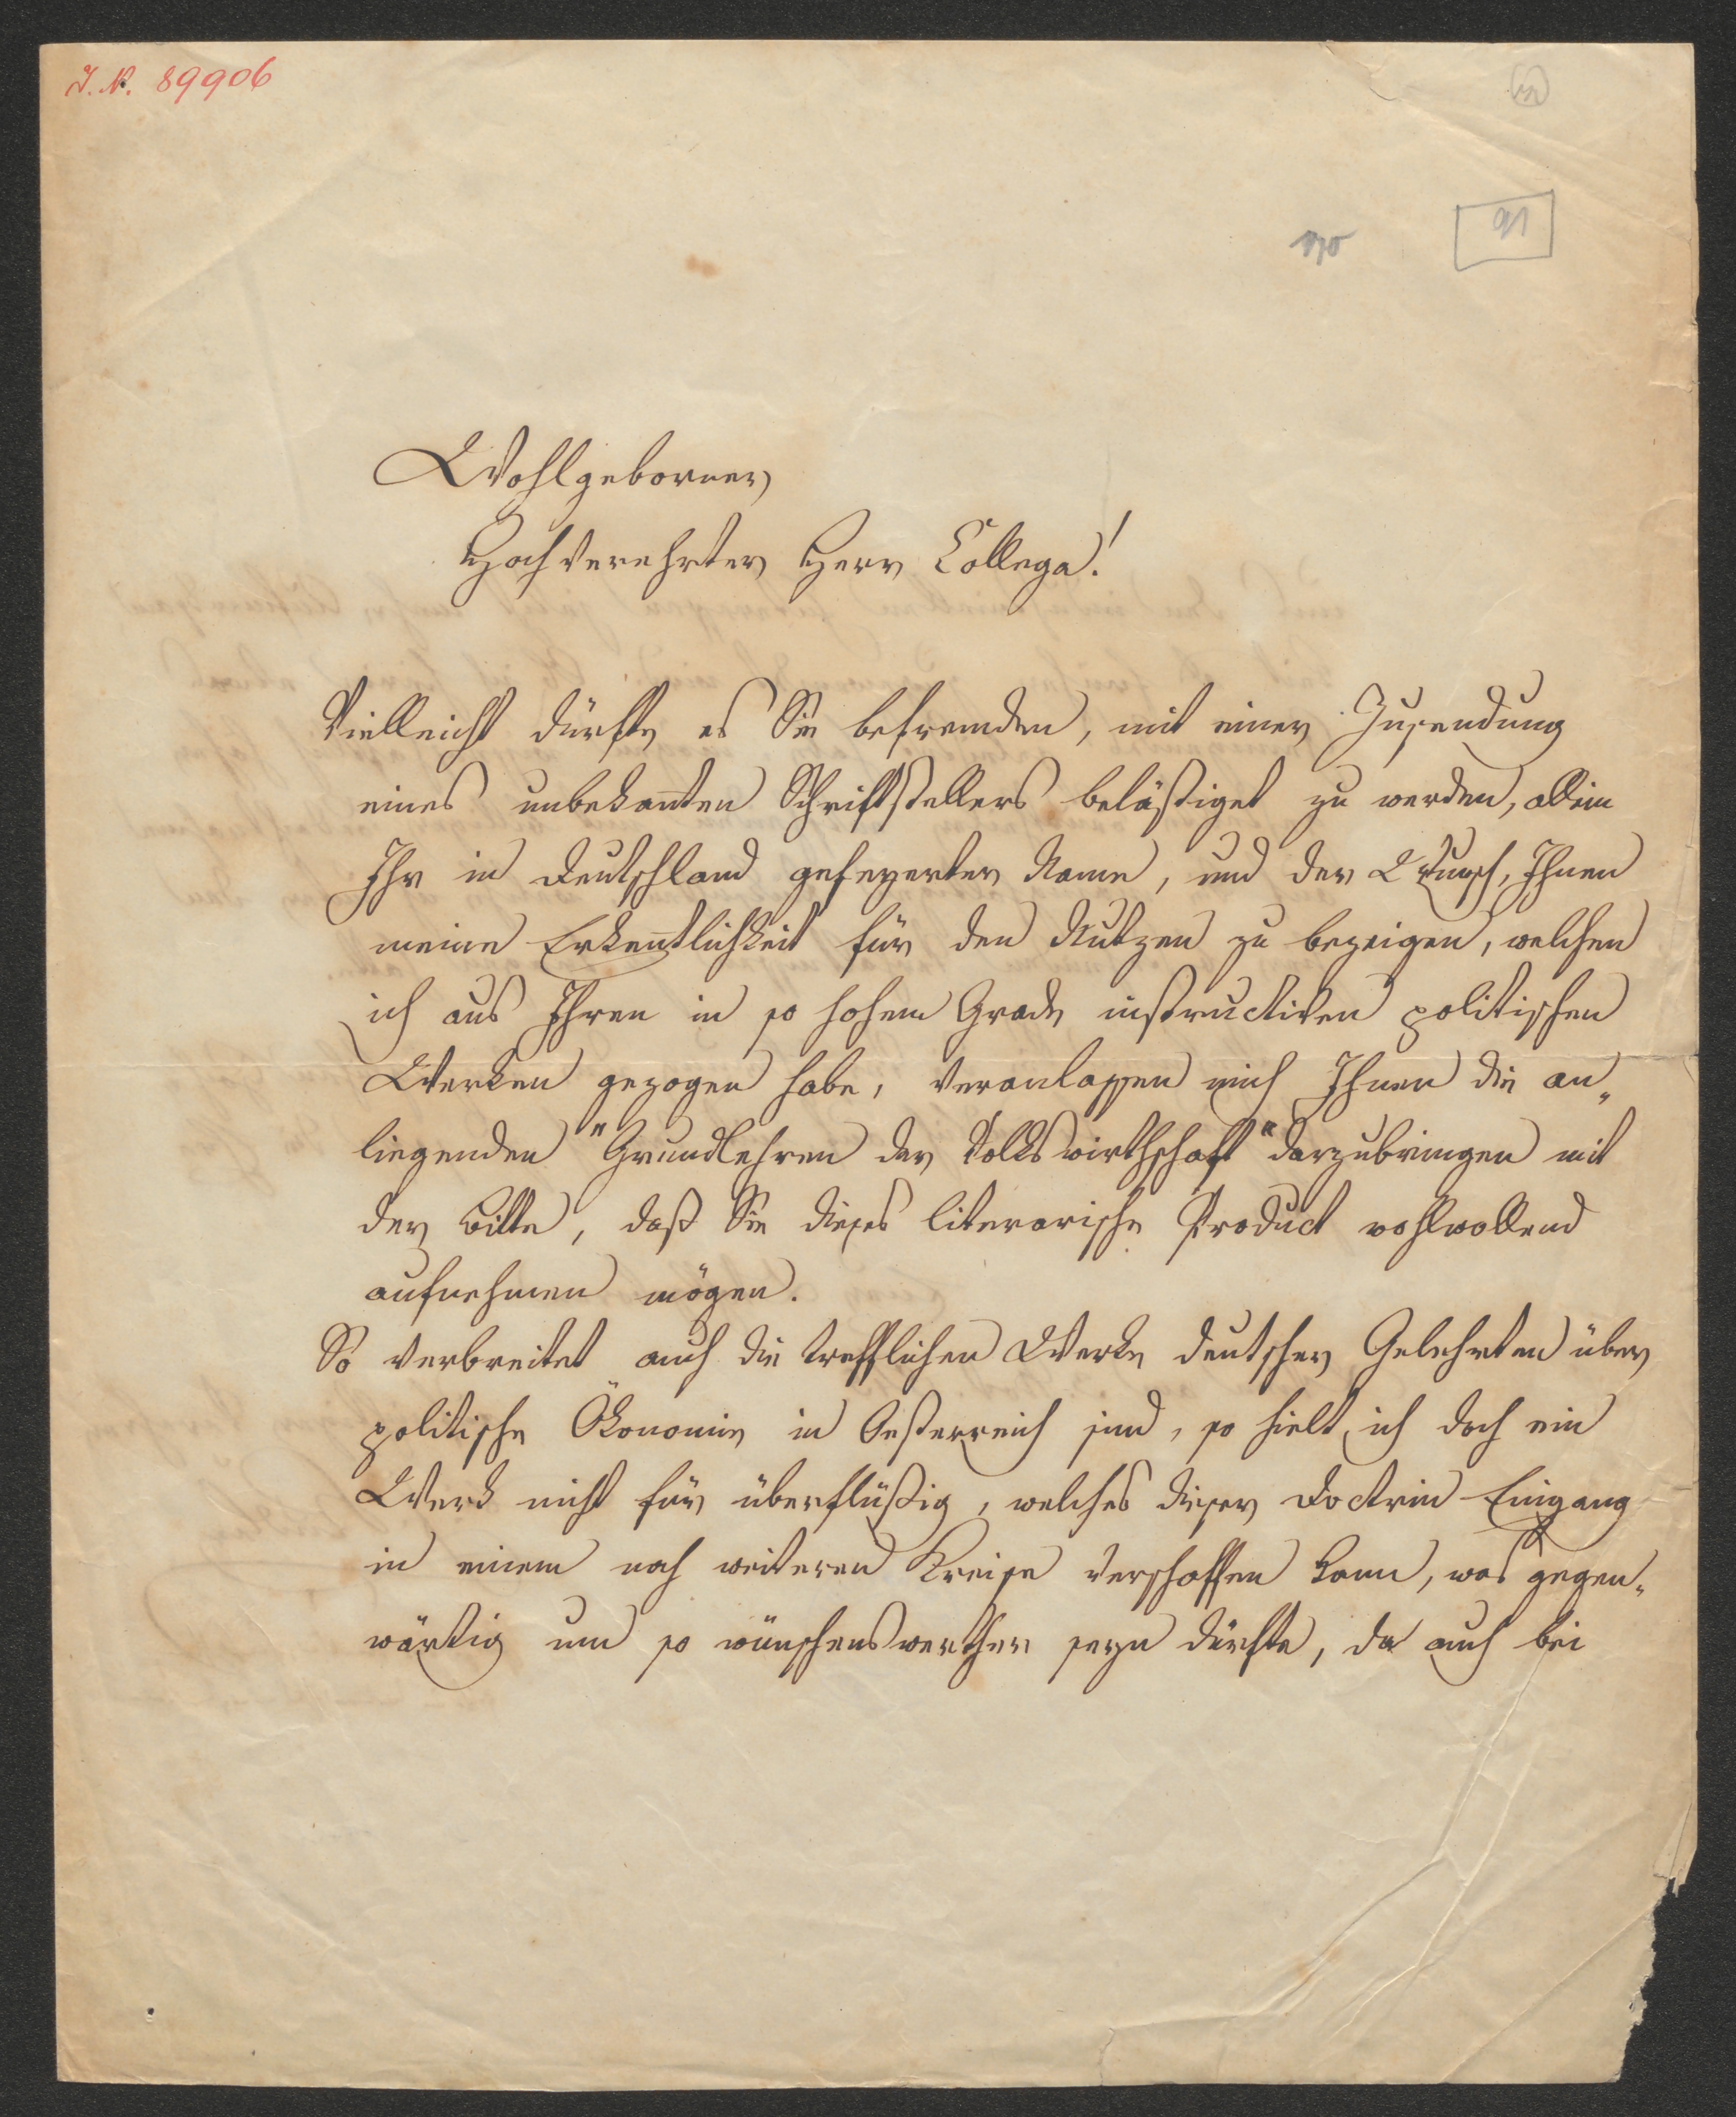 I. N. 89906
91
Wohlgeborner,
Hochverehrter Herr Collega!
Vielleicht dürfte es Sie befremden, mit einer Zusendung
eines unbekan̅ten Schriftstellers beläßiget zu werden, allein
Ihr in Deutschland gefeyerter Name, und der Wunsch, Ihnen
meine Erken̅tlichkeit für den Nutzen zu bezeigen, welchen
ich aus Ihren in so hohem Grade instructiven politischen
Werken gezogen habe, veranlassen mich Ihnen die an„
liegenden "Grundlehren der Volkswirthschaft" darzubringen mit
der Bitte, daß Sie dieses literarische Product wohlwollend
aufnehmen mögen.
So verbreitet auch die trefflichen Werke deutscher Gelehrten über
politische Ökonomie in Oesterreich sind, so hielt ich doch ein
Werk nicht für überflüßig, welches dieser Doctrin Eingang
in einem noch weiteren Kreise verschaffen kann, was gegen„
wärtig um so wünschenswerther seyn dürfte, da auch bei